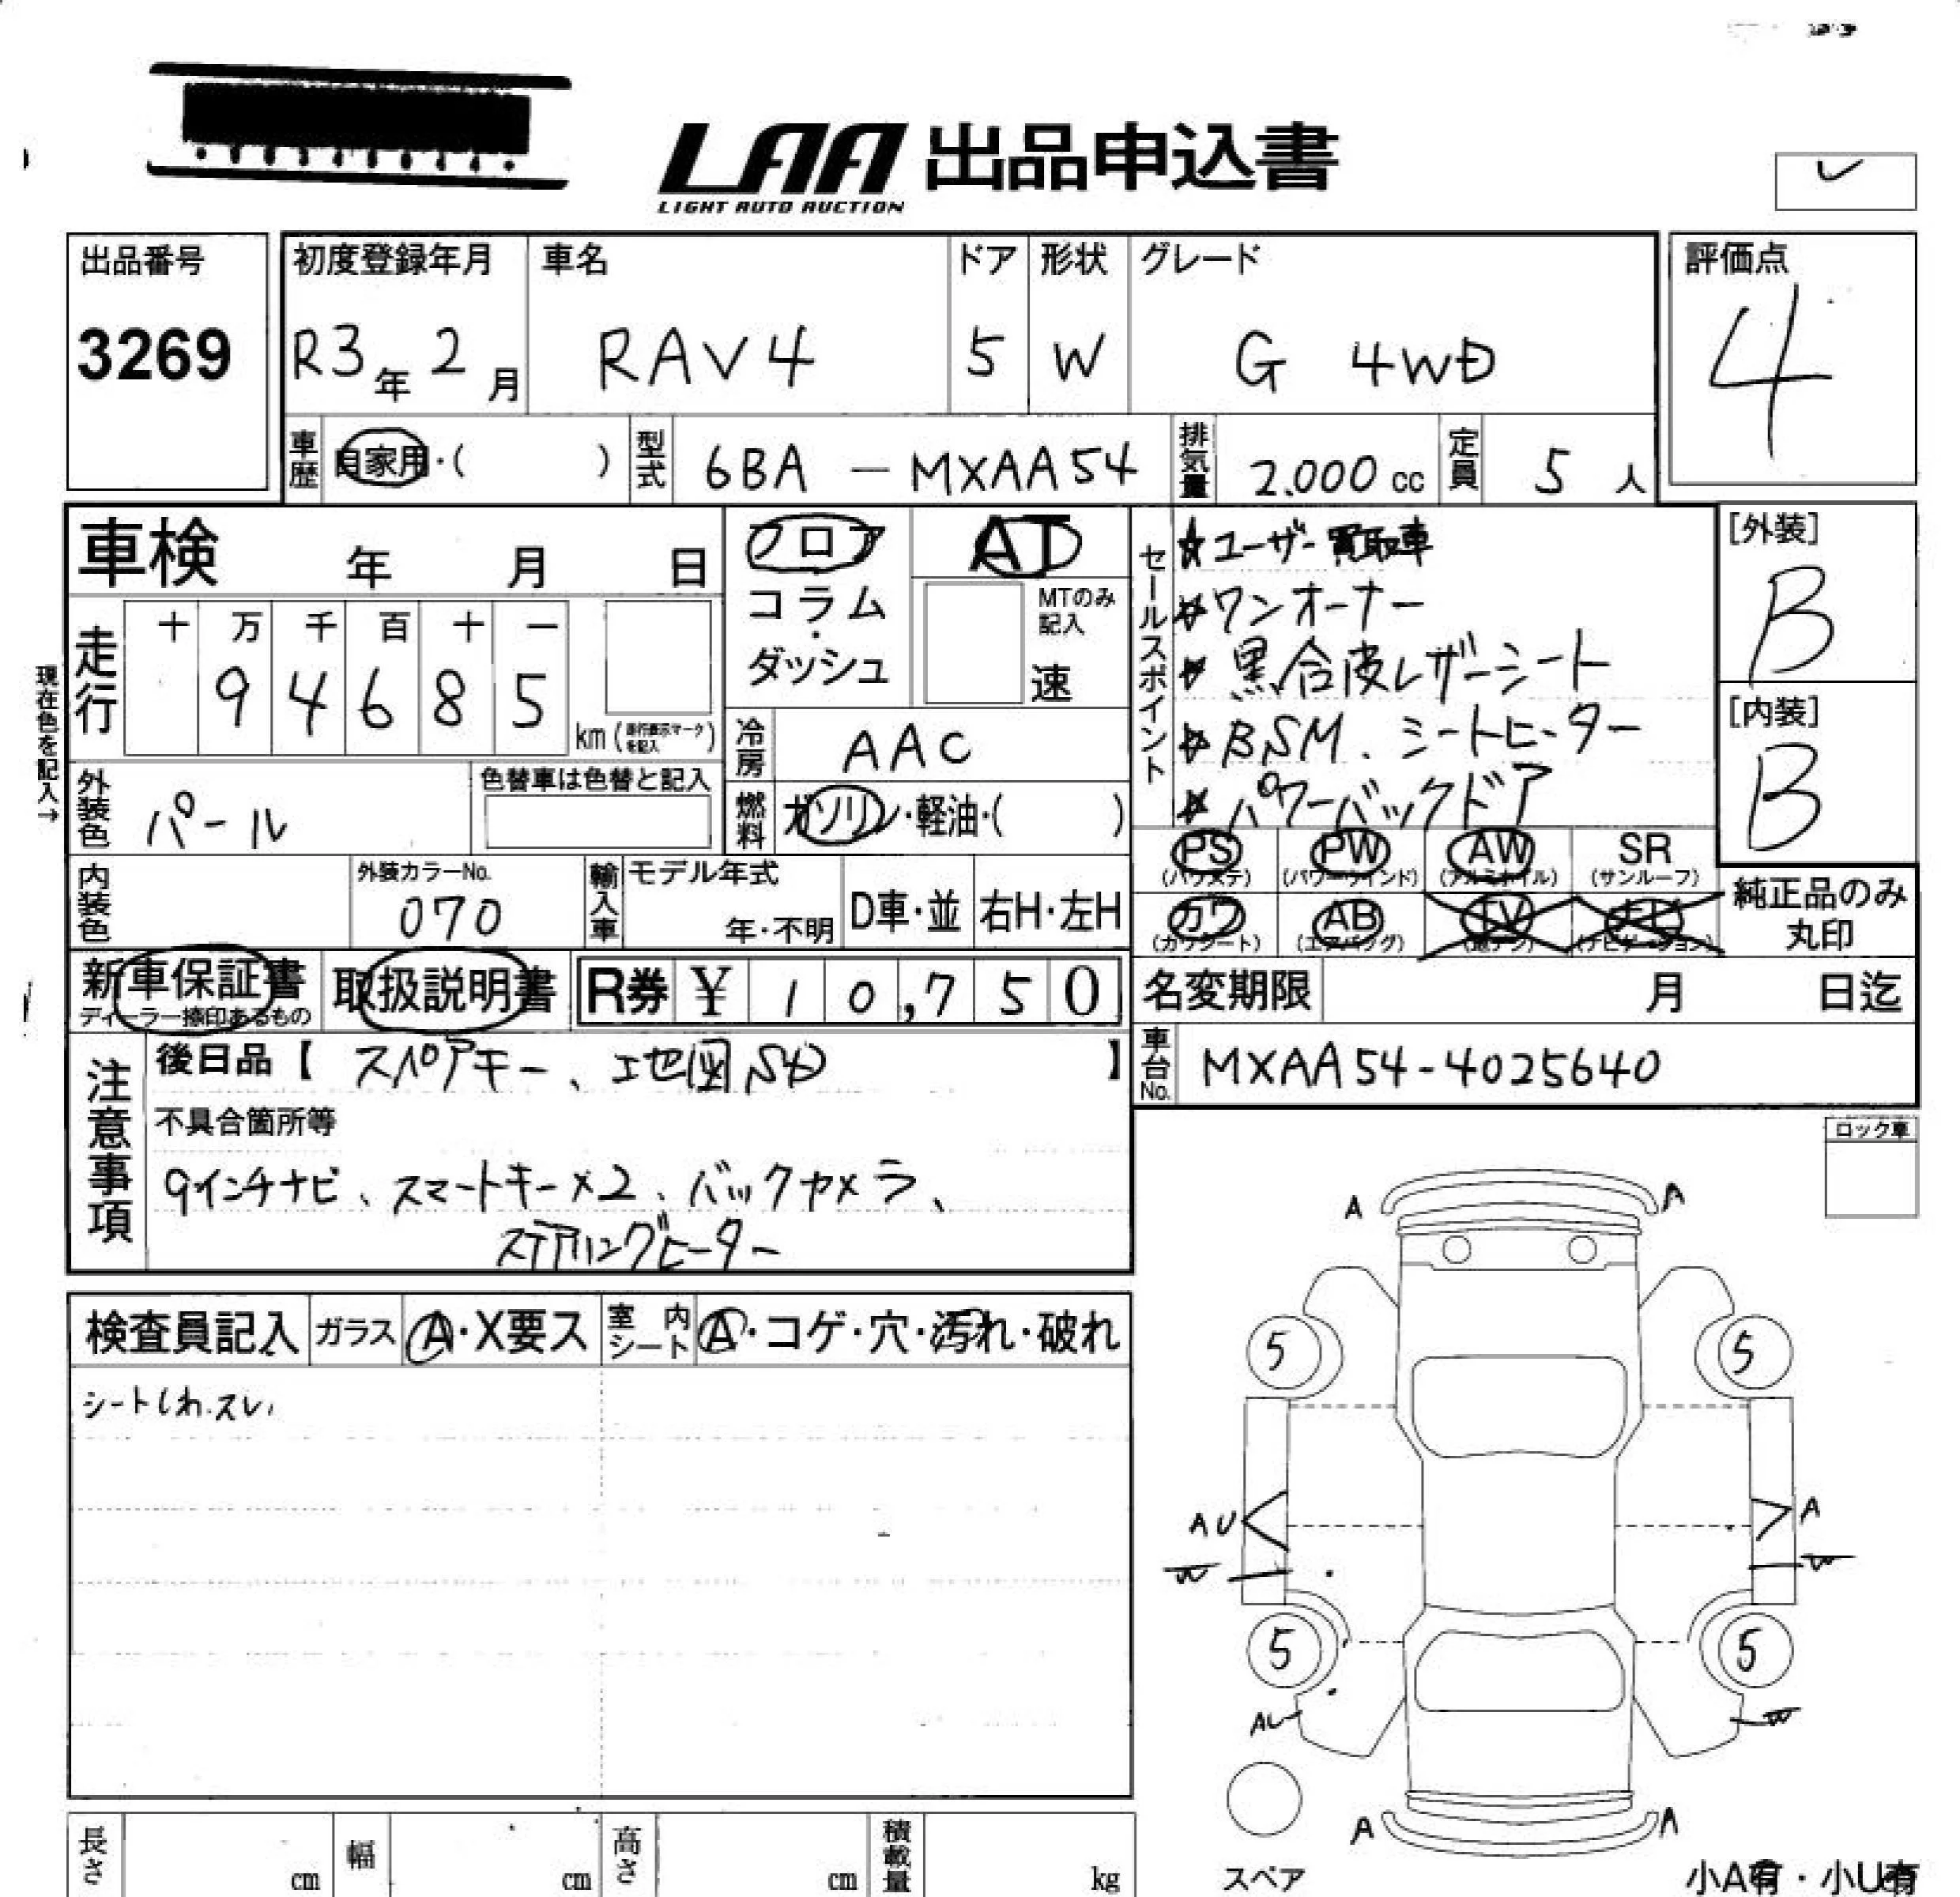 LAA 出品申込書
LIGHT AUTO AUCTION
出品番号
3269
初度登録年月
R3年2月
車名
RAV4
ドア
5
形状
W
グレード
G 4WD
評価点
4
車歴
自家用・( )
型式
6BA - MXAA54
排気量
2.000 cc
定員
5 人
車検 年 月 日
フロア
コラム
・
ダッシュ
AT
MTのみ
記入
速
現在色を記入→
走行
十 万 千 百 十 一
9 4 6 8 5
km (走行表示マークを記入)
冷房
AAC
外装色
パール
色替車は色替と記入
燃料
ガソリン・軽油・( )
内装色
外装カラーNo.
070
輸入車
モデル年式
年・不明
D車・並
右H・左H
セールスポイント
☆ユーザー買取車
☆ワンオーナー
☆黒合皮レザーシート
☆BSM、シートヒーター
☆パワーバックドア
[外装]
B
[内装]
B
PS
(パワステ)
PW
(パワーウインド)
AW
(アルミホイル)
SR
(サンルーフ)
カワ
(カワシート)
AB
(エアバッグ)
TV
(地デジ)
ナビ
(ナビゲーション)
純正品のみ
丸印
新車保証書
ディーラー捺印あるもの
取扱説明書
R券 ¥ 1 0,7 5 0
名変期限 月 日迄
車台No.
MXAA54-4025640
注意事項
後日品【 スペアキー、 】
不具合箇所等
9インチナビ、スマートキー×2、バックカメラ、
ステアリングヒーター
ロック車
検査員記入
ガラス
A・X要ス
室内シート
A・コゲ・穴・汚れ・破れ
シートしわ.スレ
A A
5 5
AU A
W W
5 5
AU W
A A
スペア
小A有・小U有
長さ cm
幅 cm
高さ cm
積載量 kg